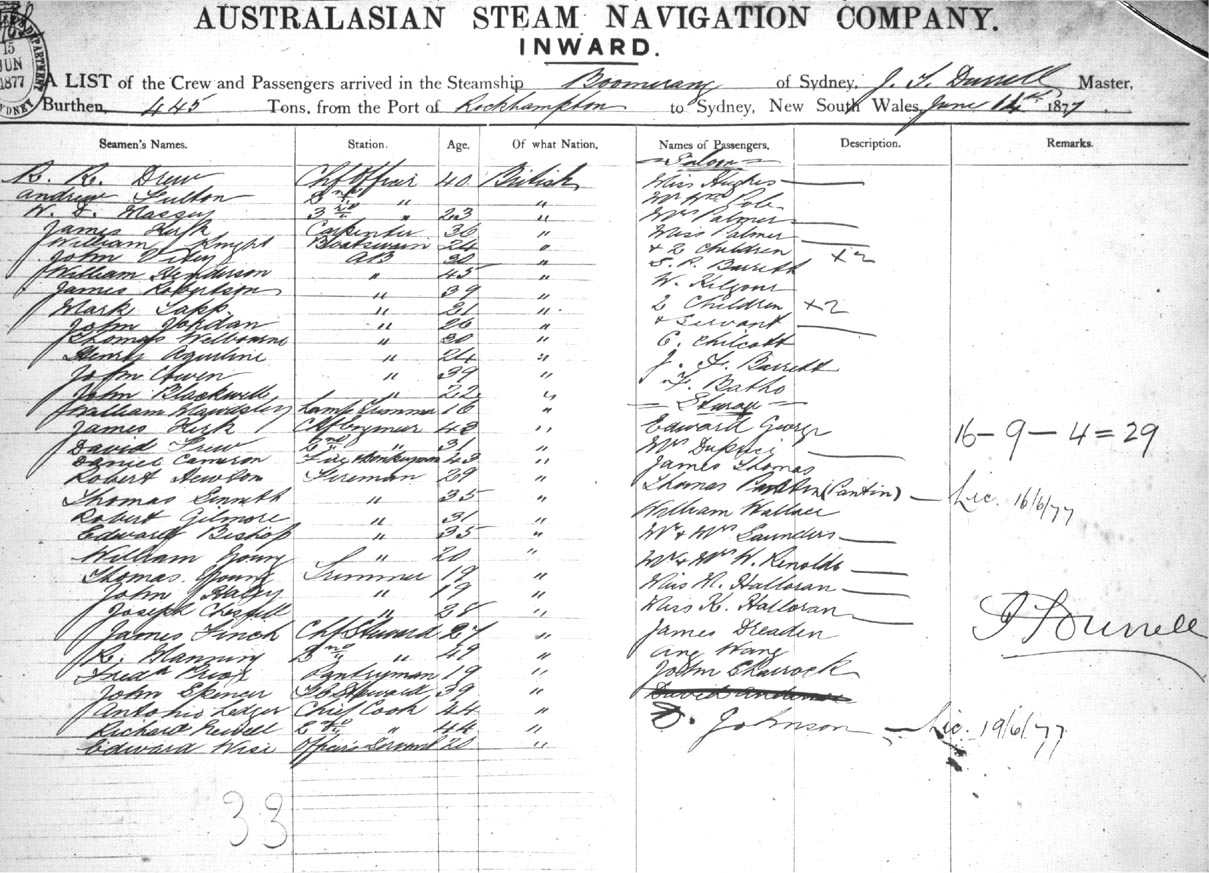 AUSTRALASIAN STEAM NAVIGATION COMPANY.
INWARD.
15 JUN 1877
A LIST of the Crew and Passengers arrived in the Steamship Boomerang of Sydney, Master,
Burthen 445 Tons, from the Port of Rockhampton to Sydney, New South Wales, June 14th 1877
Seamen's Names. Station. Age. Of what Nation. Names of Passengers. Description. Remarks.
Saloon
R. R. Drew Chf Officer 40 British Miss Hughes
Andrew Fulton 2nd " " Mr Wm Cole
W. D. Massey 3rd " 23 " Mrs Palmer
James Kirk Carpenter 36 " Miss Palmer
William Knight Boatswain 24 " & 2 Children x2
John AB 30 " S. P. Barrett
William Henderson " 45 " W. Kilgour
James Robertson " 39 " 2 Children x2
Mark Lapp " 21 " & Servant
John Jordan " 26 " C. Chilcott
Thomas Welbourne " 30 " J. F. Barrett
Henry " 24 " F. Batho
John Owen " 39 "
John Blackwell " 22 " Steerage
William Mawdsley Lamp Trimmer 16 " Edward George
James Kirk Chf Engineer 43 " Mrs 16 - 9 - 4 = 29
David Frew 2nd " 31 " James Thomas
Daniel Cameron Fire & Donkeyman 43 " Thomas (Pantin) - Lic. 16/6/77
Robert Newton Fireman 29 " William Wallace
Thomas " 35 " Mr & Mrs Saunders
Robert Gilmore " 31 " Mr & Mrs W. Renolds
Edward Bishop " 35 " Miss M. Halloran
William Young " 20 " Miss K. Halloran
Thomas Young Trimmer 19 " James Dreaden
John Haley " 19 " Ang Wang
Joseph " 28 " John Sharrock
James Finch Chf Steward 27 "
R. Manning 2nd " 49 " Johnson - Lic. 19/6/77
Fredk Prior Pantryman 19 "
John Spencer Steward 39 "
Antonio Ledger Chief Cook 44 "
Richard 2nd " 44 "
Edward Wise Officers Servant 20 "
33